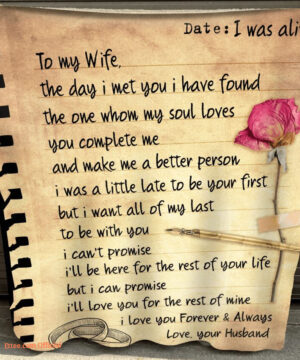 Date: I was
To my Wife,
the day i met you i have found
the one whom my soul loves
you complete me
and make me a better person
i was a little late to be your first
but i want all of my last
to be with you
i can't promise
i'll be here for the rest of your life
but i can promise
i'll love you for the rest of mine
i love you Forever & Always
Love, your Husband